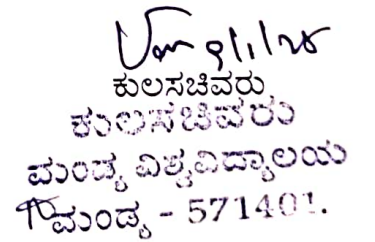 ಕುಲಸಚಿವರು
ಕುಲಸಚಿವರು
ಮಂಡ್ಯ ವಿಶ್ವವಿದ್ಯಾಲಯ
ಮಂಡ್ಯ - 571401.